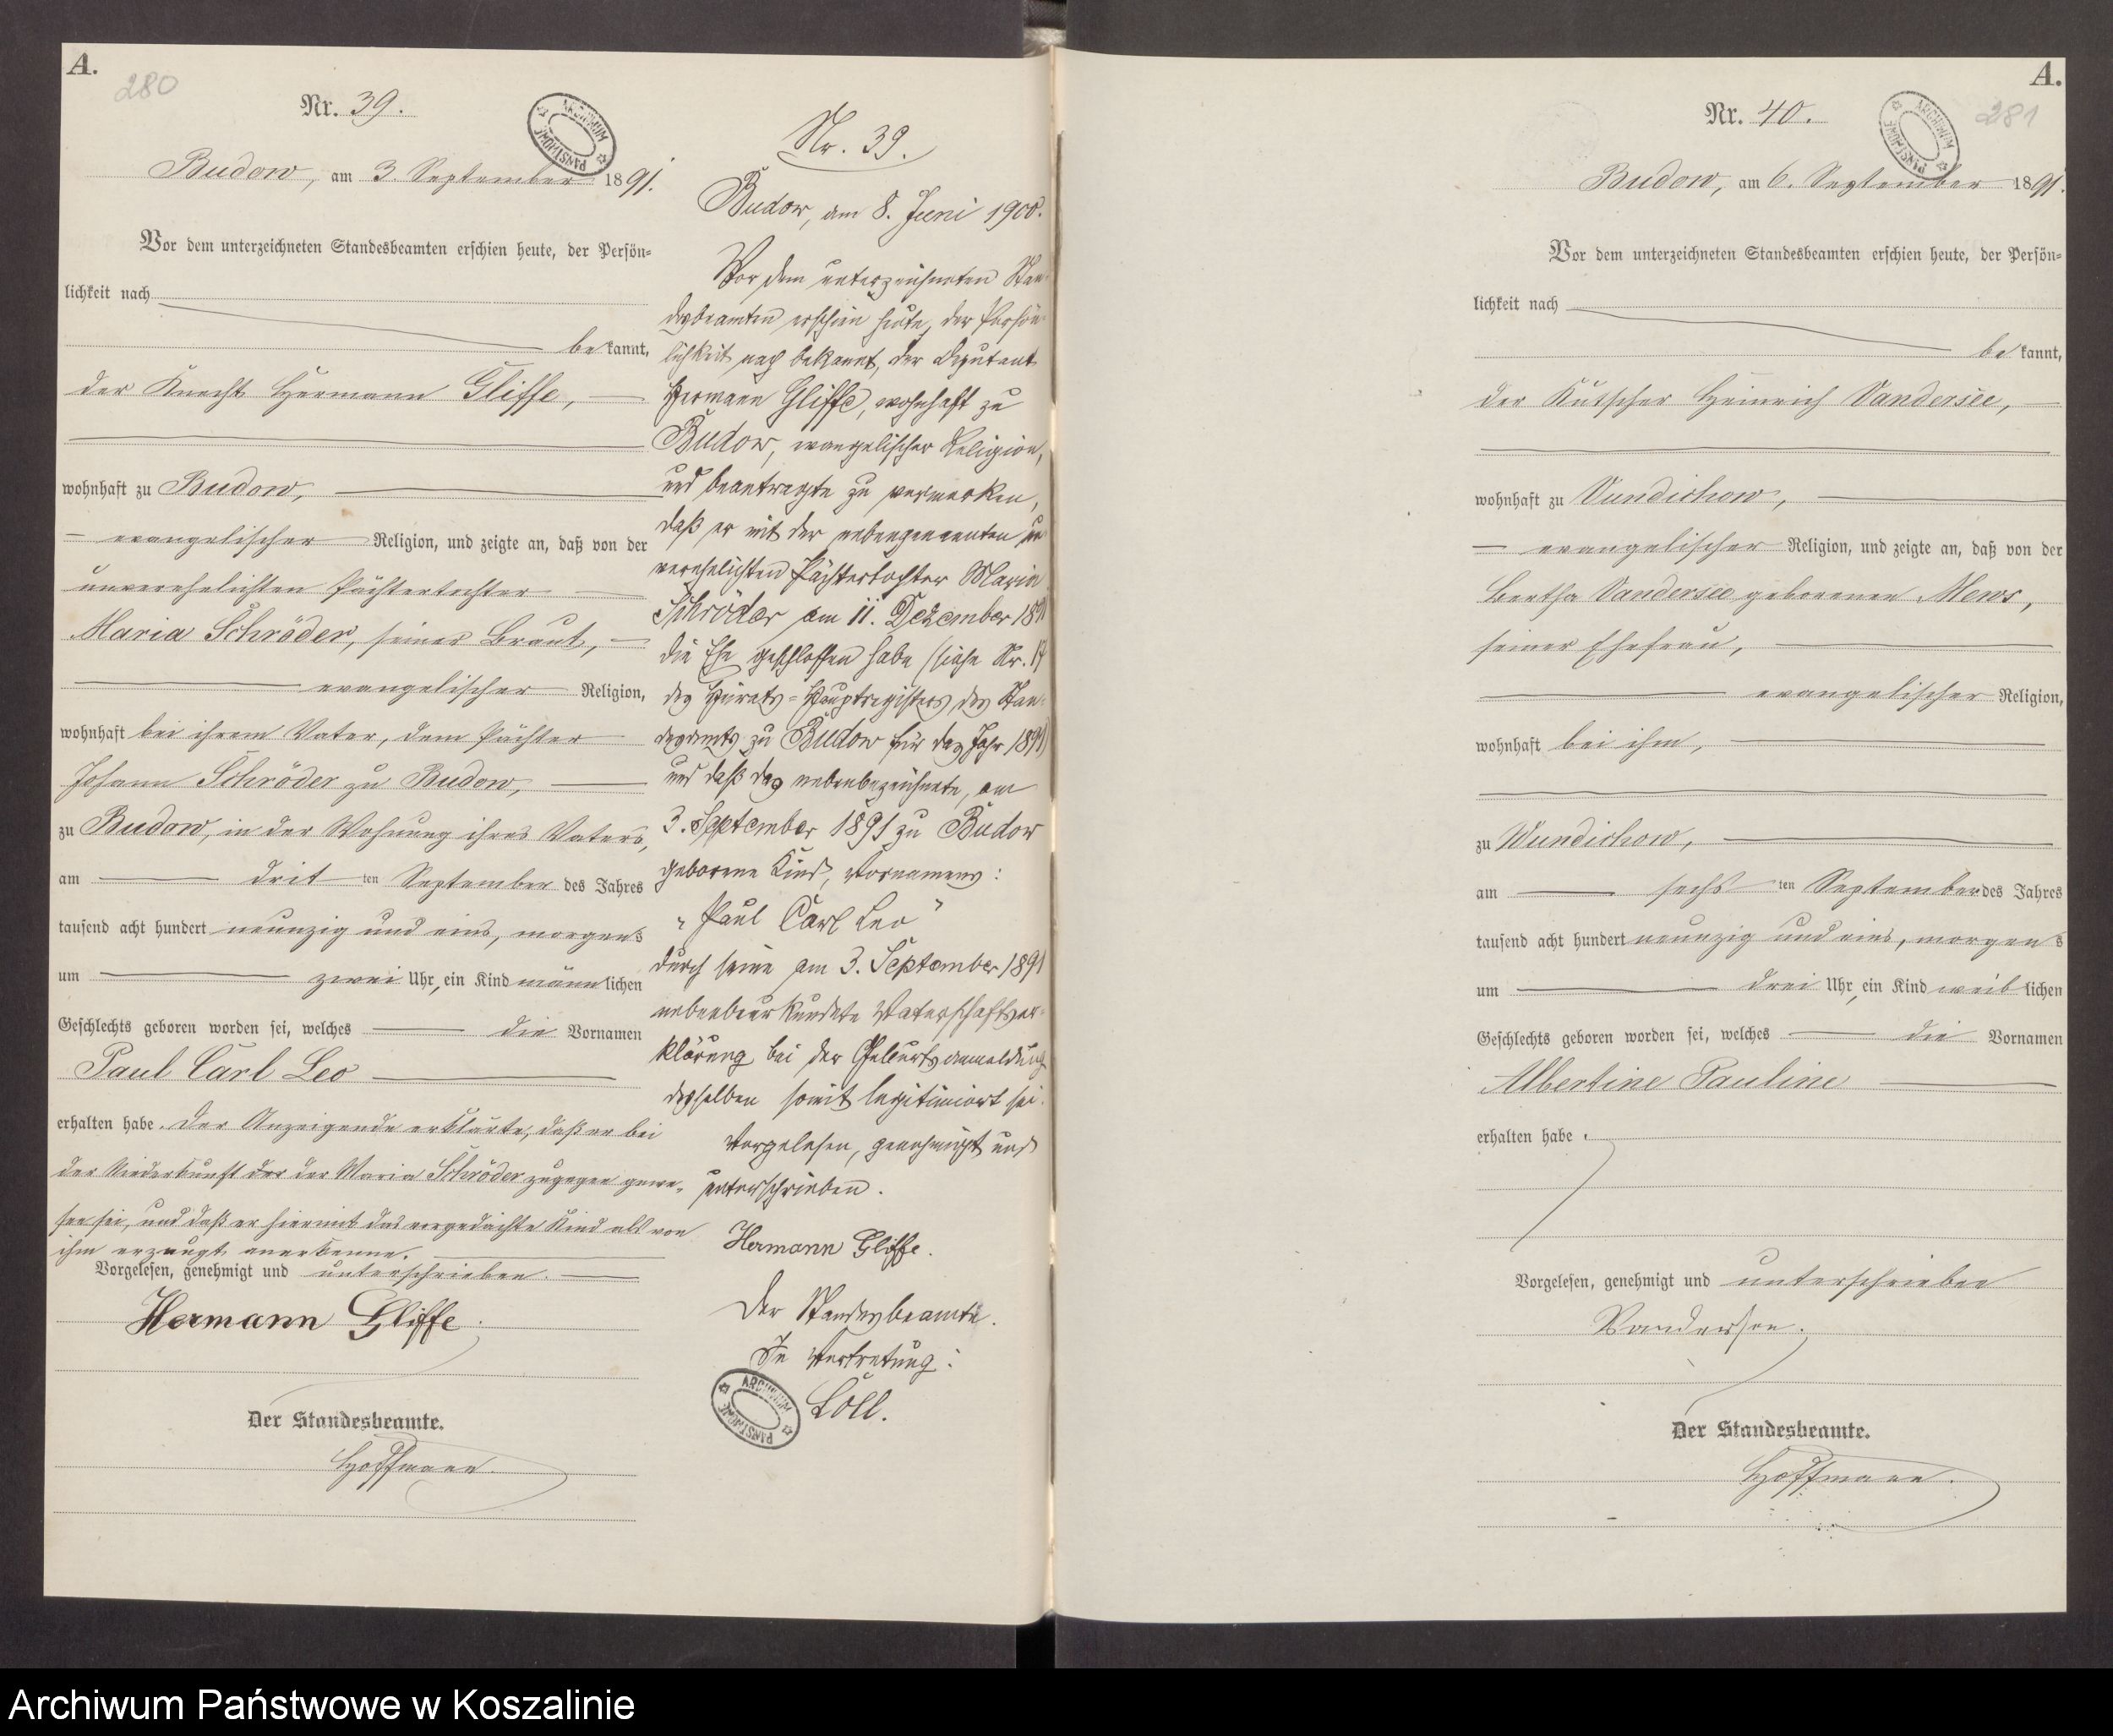 A.
280
Nr. 39.
Budow, am 3. September 1891.
Vor dem unterzeichneten Standesbeamten erschien heute, der Persön-
lichkeit nach
bekannt,
der Knecht Hermann Gliffe,
wohnhaft zu Budow,
evangelischer Religion, und zeigte an, daß von der
unverehelichten Pächtertochter
Maria Schröder, seiner Braut,
evangelischer Religion,
wohnhaft bei ihrem Vater, dem Pächter
Johann Schröder zu Budow,
zu Budow, in der Wohnung ihres Vaters,
am dritten September des Jahres
tausend acht hundert neunzig und eins, morgens
um zwei Uhr, ein Kind männlichen
Geschlechts geboren worden sei, welches die Vornamen
Paul Carl Leo
erhalten habe. Der Anzeigende erklärte, daß er bei
der Niederkunft der der Maria Schröder zugegen gewe-
sen sei, und daß er hiermit das vorgedachte Kind als von
ihm erzeugt anerkenne.
Vorgelesen, genehmigt und unterschrieben.
Hermann Gliffe.
Der Standesbeamte.
Hoffmann.
Nr. 39.
Budow, am 8. Juni 1900.
Vor dem unterzeichneten Stan-
desbeamten erschien heute, der Persön-
lichkeit nach bekannt, der Deputant
Hermann Gliffe, wohnhaft zu
Budow, evangelischer Religion,
und beantragte zu vermerken,
daß er mit der nebengenannten un-
verehelichten Pächtertochter Maria
Schröder am 11. Dezember 1891
die Ehe geschlossen habe (siehe Nr. 17
des Heirats-Hauptregisters des Stan-
desamts zu Budow für das Jahr 1891)
und daß das nebenbezeichnete, am
3. September 1891 zu Budow
geborene Kind, Vornamens:
"Paul Carl Leo"
durch seine am 3. September 1891
nebenbeurkundete Vaterschaftser-
klärung bei der Geburtsanmeldung
desselben somit legitimiert sei.
Vorgelesen, genehmigt und
unterschrieben.
Hermann Gliffe.
Der Standesbeamte.
In Vertretung:
Löll.
ARCHIWUM PAŃSTWOWE
A.
281
Nr. 40.
Budow, am 6. September 1891.
Vor dem unterzeichneten Standesbeamten erschien heute, der Persön-
lichkeit nach
bekannt,
der Kutscher Heinrich Vandersee,
wohnhaft zu Wundichow,
evangelischer Religion, und zeigte an, daß von der
Bertha Vandersee geborenen Mews,
seiner Ehefrau,
evangelischer Religion,
wohnhaft bei ihm,
zu Wundichow,
am sechsten September des Jahres
tausend acht hundert neunzig und eins, morgens
um drei Uhr, ein Kind weiblichen
Geschlechts geboren worden sei, welches die Vornamen
Albertine Pauline
erhalten habe.
Vorgelesen, genehmigt und unterschrieben
Vandersee.
Der Standesbeamte.
Hoffmann.
Archiwum Państwowe w Koszalinie